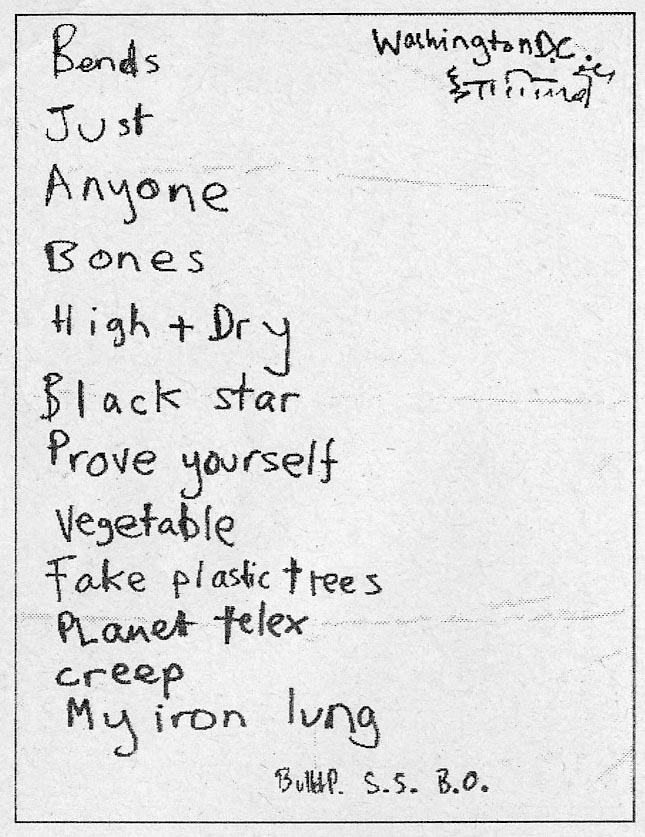 Washington D.C.
Bends
Just
Anyone
Bones
High + Dry
Black star
Prove yourself
Vegetable
Fake plastic trees
Planet telex
creep
My iron lung
BulletP. S.S. B.O.